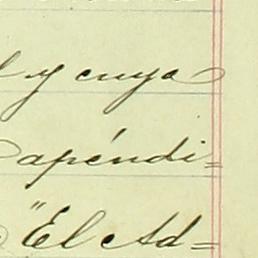 y cuya
apéndi=
"El Ad=